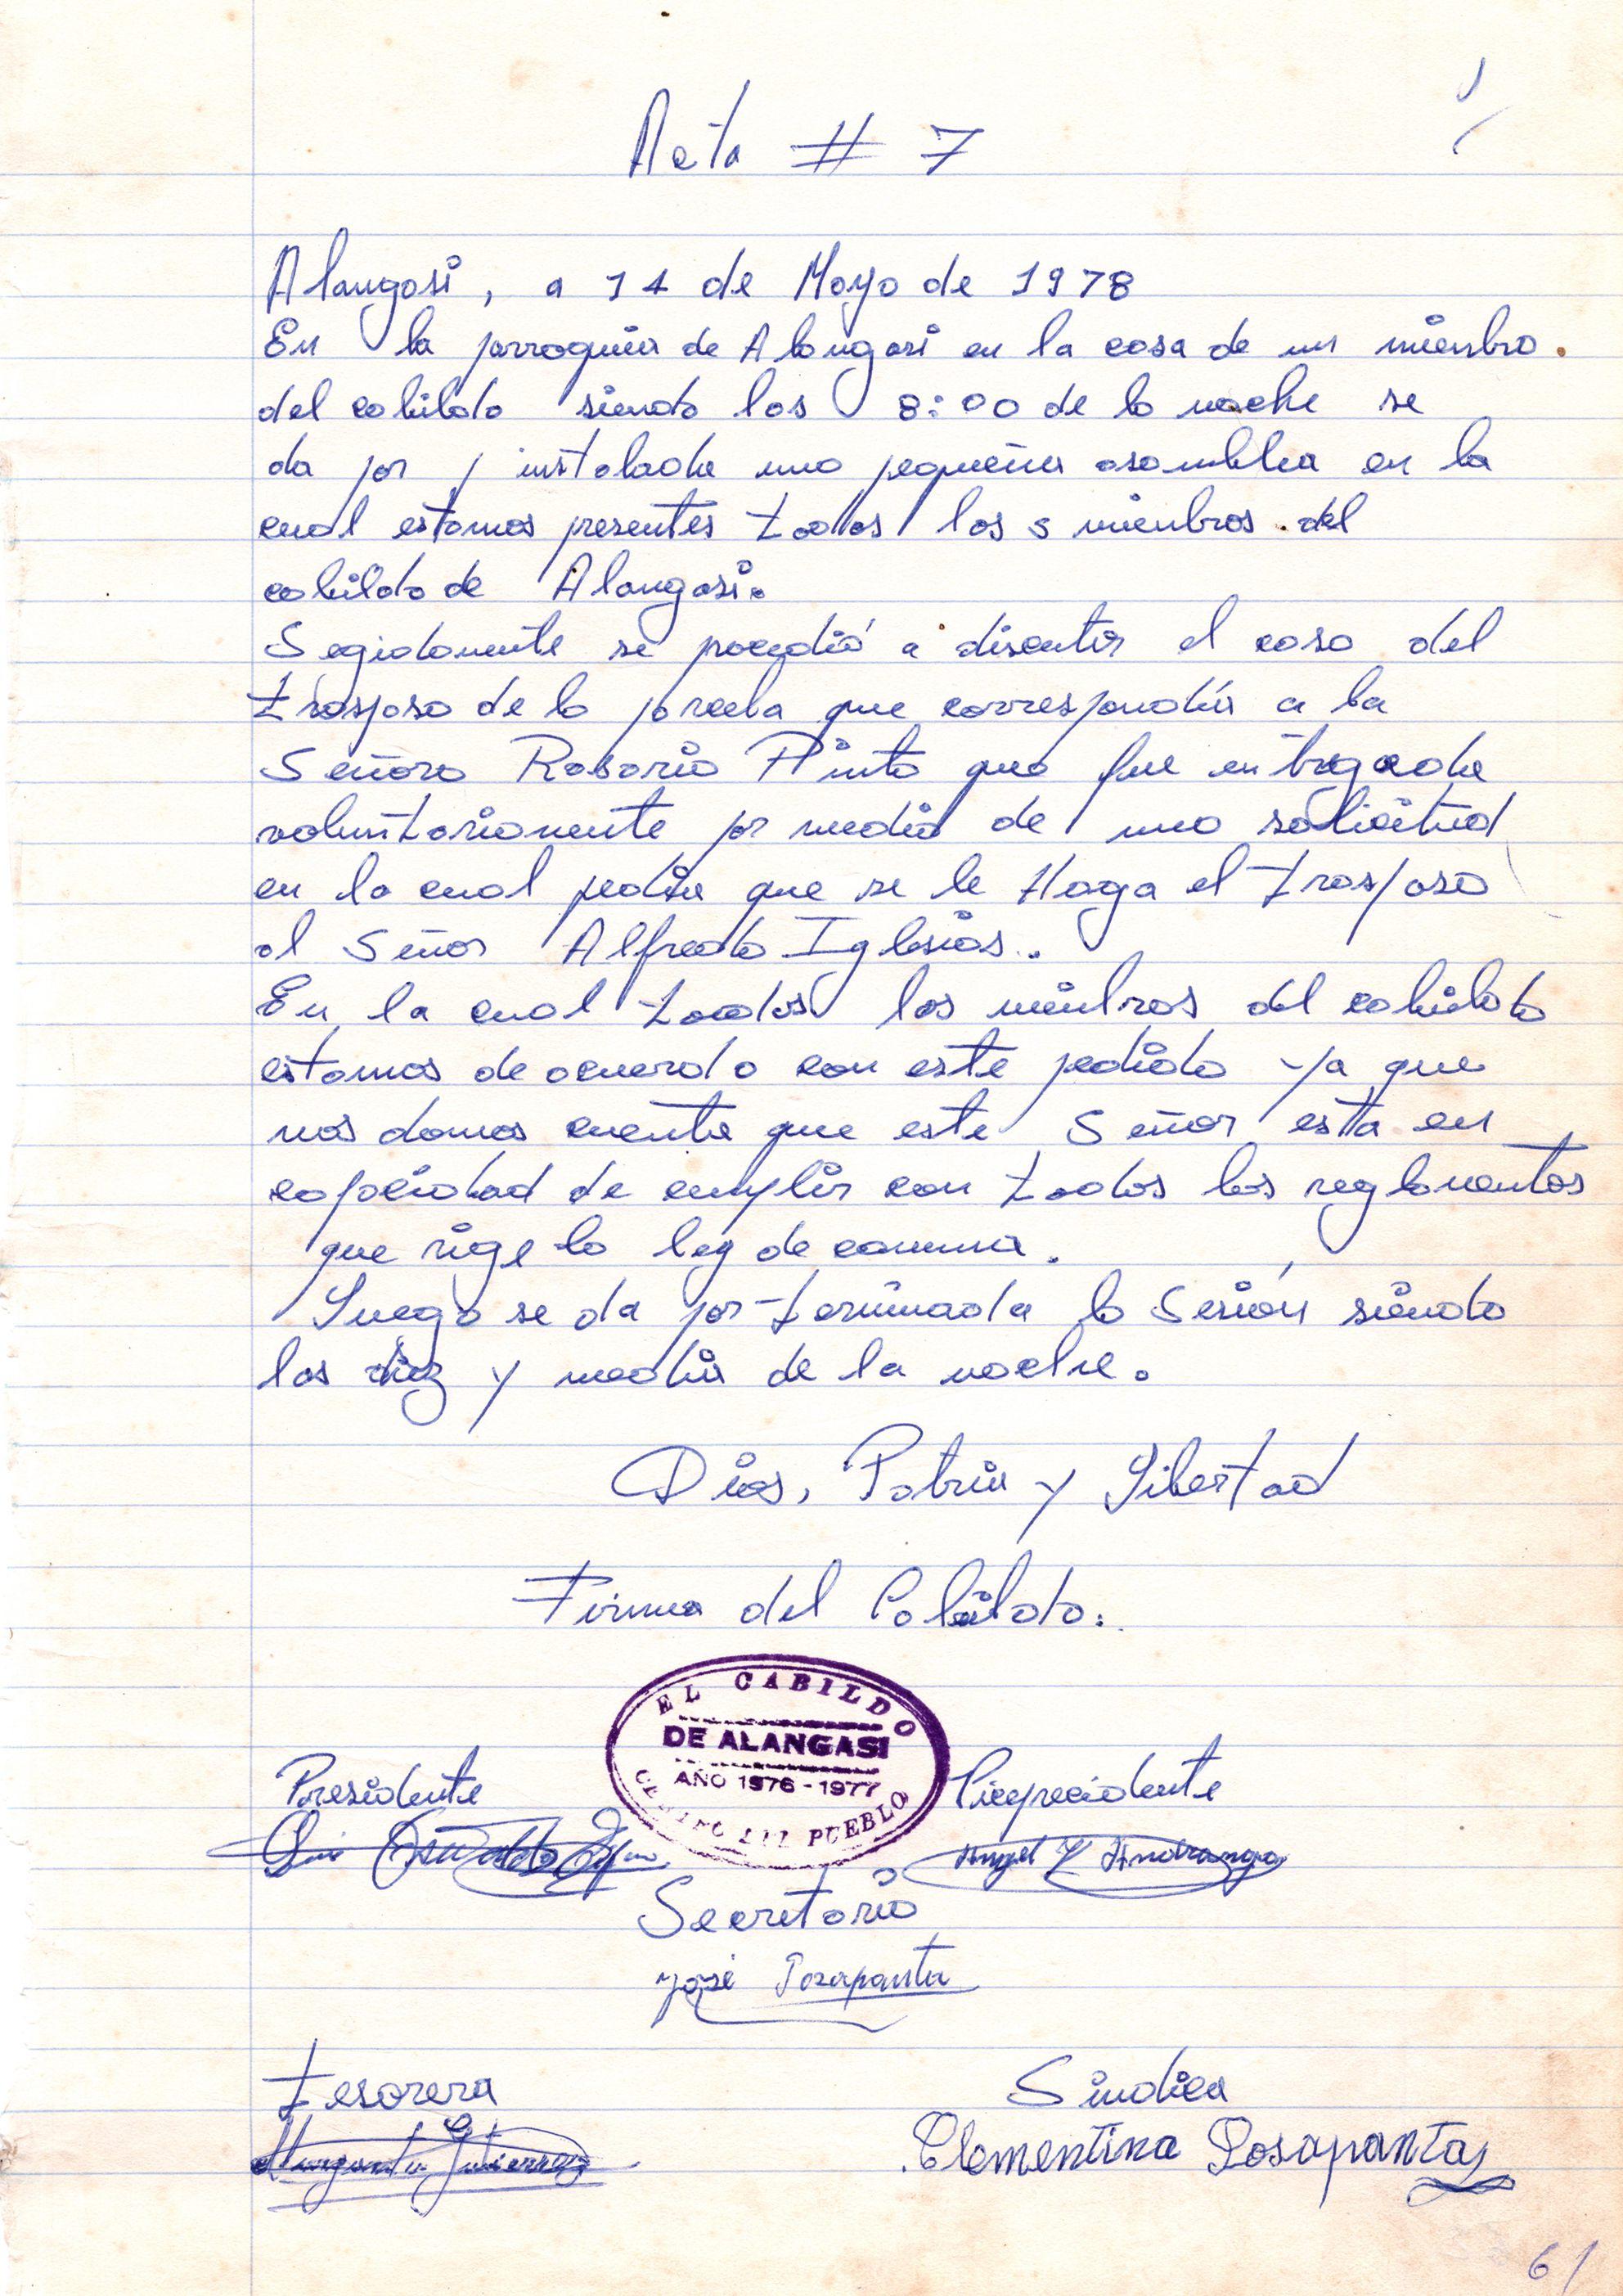 Acta # 7
Alangasi, a 14 de Mayo de 1978
En la parroquia de Alangasi en la casa de un miembro.
del cabildo siendo las 8:00 de la noche se
da por instalada una pequeña asamblea en la
cual estamos presentes todos los 5 miembros del
cabildo de Alangasi.
Segidamente se procedió a discutir el caso del
traspaso de la parcela que correspondia a la
Señora Rosario Pinto que fue entregada
voluntariamente por medio de una solicitud
en la cual pedia que se le Haga el traspaso
al Señor Alfredo Iglesias.
En la cual todos los miembros del cabildo
estamos de acuerdo con este pedido ya que
nos damos cuenta que este Señor esta en
capacidad de cumplir con todos los reglamentos
que rige la ley de comuna.
Luego se da por terminada la Sesión siendo
las diez y media de la noche.
Dios, Patria y Libertad
Firma del Cabildo:
EL CABILDO
DE ALANGASI
AÑO 1976 - 1977
CENTRO DEL PUEBLO
Presidente
Vicepresidente
Angel Andrango
Secretario
José Posapanta
Tesorera
Margarita Gutierrez
Sindica
Clementina Posapanta
61